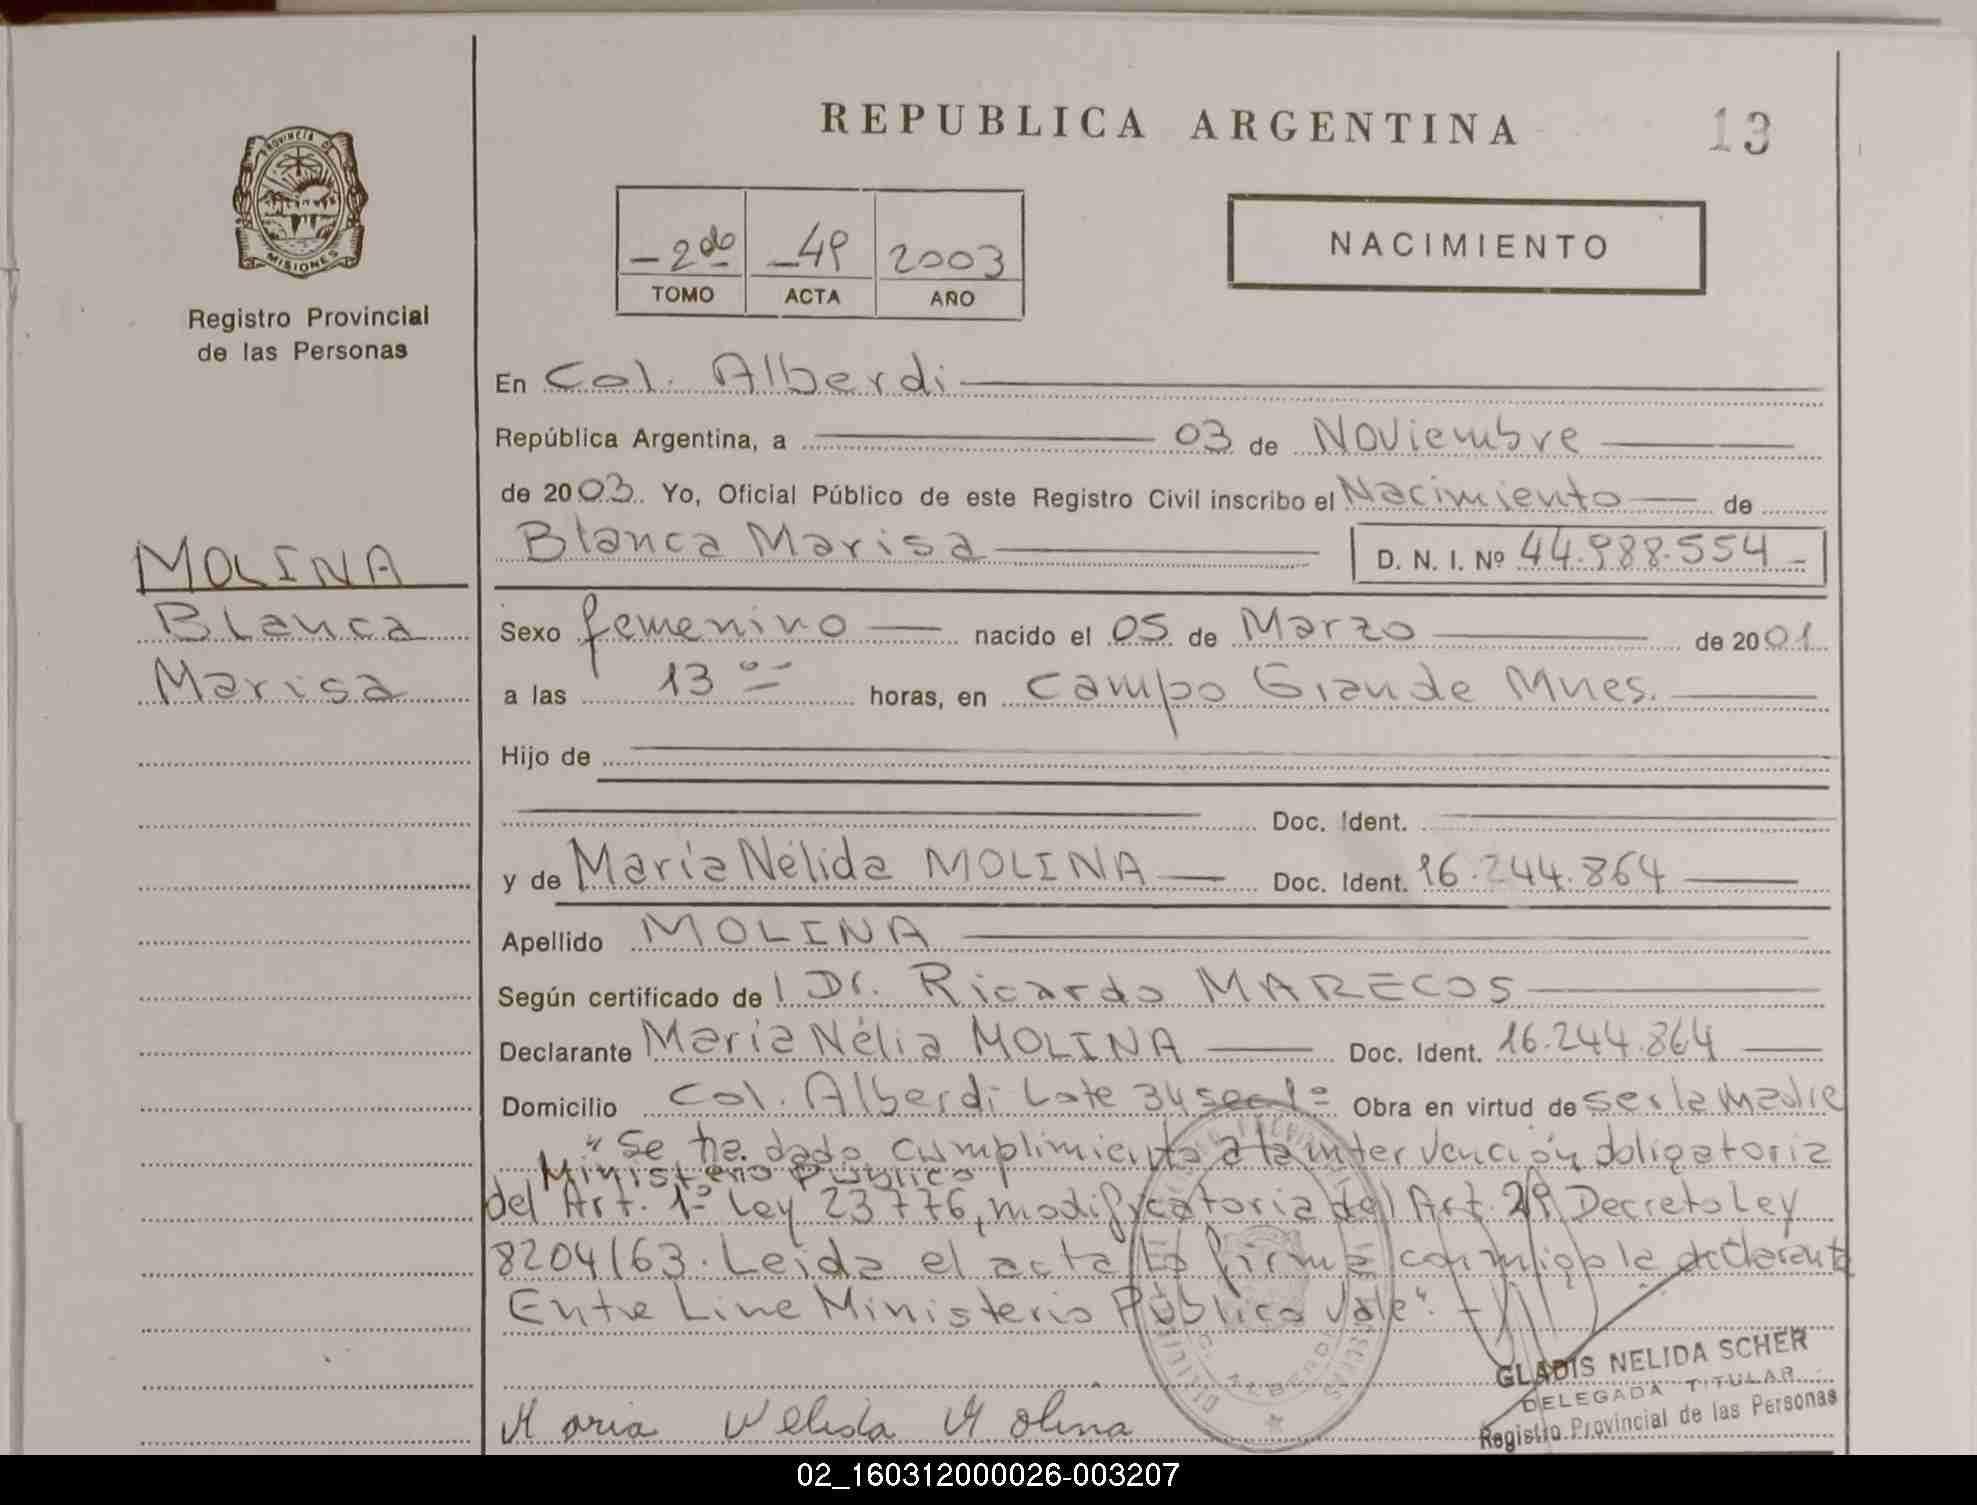 REPUBLICA ARGENTINA
13
PROVINCIA DE
MISIONES
Registro Provincial
de las Personas
-2do -49 2003
TOMO ACTA AÑO
NACIMIENTO
En Col. Alberdi
República Argentina, a 03 de Noviembre
de 2003. Yo, Oficial Público de este Registro Civil inscribo el Nacimiento de
Blanca Marisa D. N. I. Nº 44.988.554-
MOLINA
Blanca
Marisa
Sexo femenino nacido el 05 de Marzo de 2001
a las 13 00 horas, en Campo Grande Mnes.
Hijo de
Doc. Ident.
y de María Nélida MOLINA Doc. Ident. 16.244.864
Apellido MOLINA
Según certificado de Dr. Ricardo MARECOS
Declarante María Nélia MOLINA Doc. Ident. 16.244.864
Domicilio Col. Alberdi Lote 34 sec 1º Obra en virtud de ser la madre
"Se ha dado cumplimiento a la intervención obligatoria
Ministerio Público
del Art. 1º Ley 23776, modificatoria del Art. 29 Decreto Ley
8204/63. Leida el acta la firma conmigo la declarante
Entre Line Ministerio Público Vale".-
GLADIS NELIDA SCHER
DELEGADA TITULAR
Registro Provincial de las Personas
Maria Nelida Molina
02_160312000026-003207